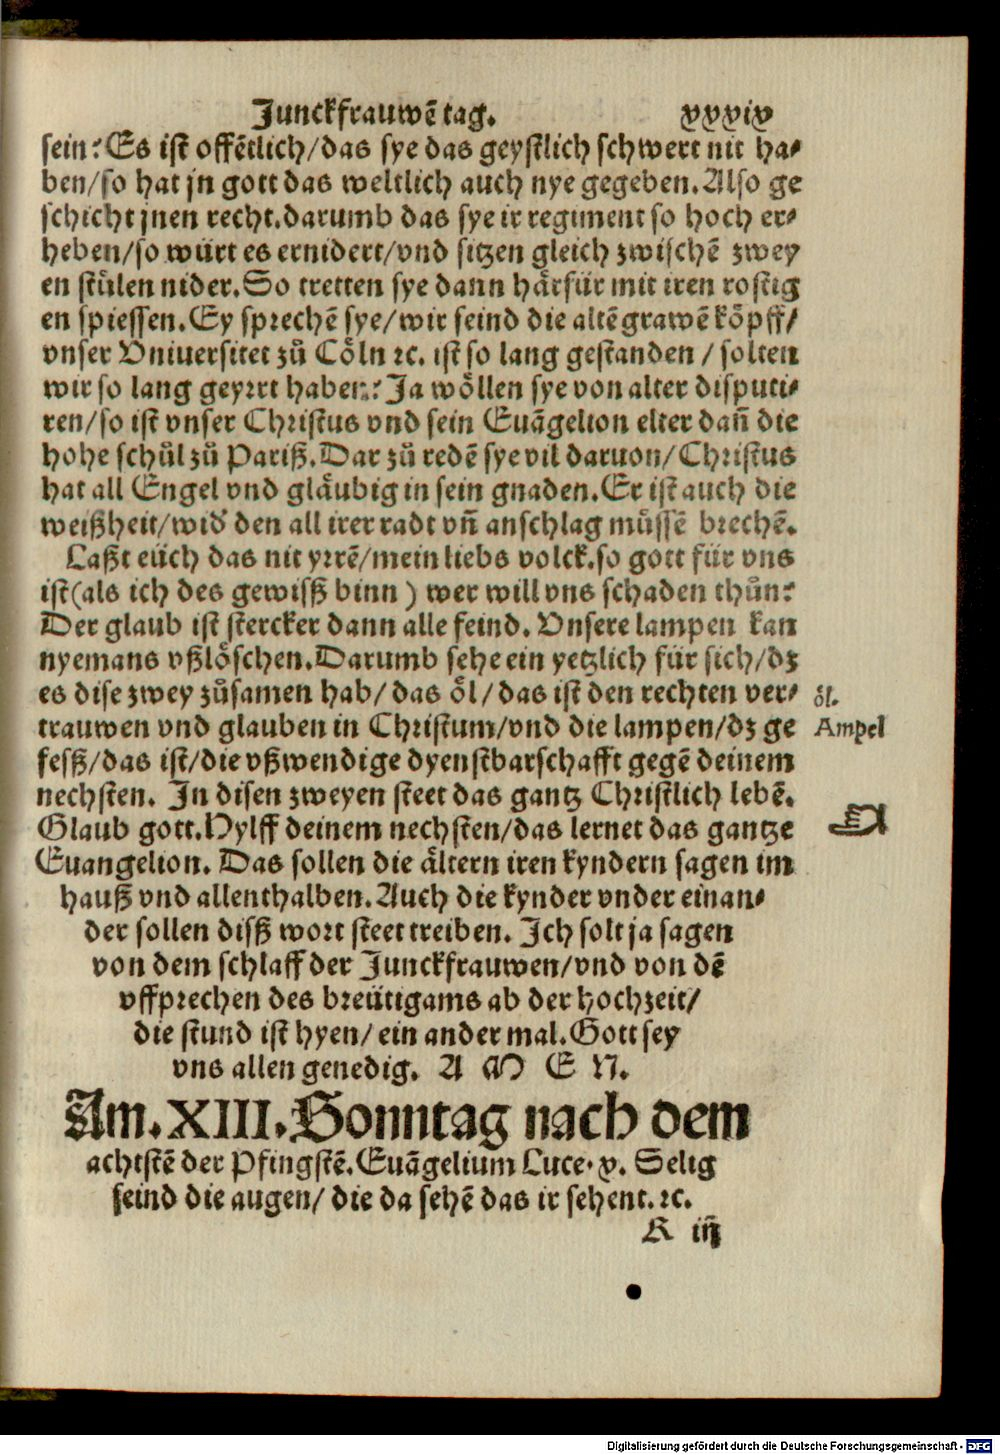 Junckfrauwē tag. xxxix
sein? Es ist offētlich/das sye das geystlich schwert nit ha⸗
ben/so hat jn gott das weltlich auch nye gegeben. Also ge
schicht jnen recht. darumb das sye ir regiment so hoch er⸗
heben/so würt es ernidert/vnd sitzen gleich zwischē zwey
en stůlen nider. So tretten sye dann härfür mit iren rostig
en spiessen. Ey sprechē sye/wir seind die altē grawē köpff/
vnser Vniuersitet zů Cöln ⁊c. ist so lang gestanden / solten
wir so lang geyrrt haben? Ja wöllen sye von alter disputi⸗
ren/so ist vnser Christus vnd sein Euāgelion elter dañ die
hohe schůl zů Pariß. Dar zů redē sye vil daruon/Christus
hat all Engel vnd gläubig in sein gnaden. Er ist auch die
weißheit/wid' den all irer radt vñ anschlag müssē brechē.
Laßt eüch das nit yrrē/mein liebs volck. so gott für vns
ist(als ich des gewisß binn ) wer will vns schaden thůn?
Der glaub ist stercker dann alle feind. Vnsere lampen kan
nyemans vßlöschen. Darumb sehe ein yetzlich für sich/dz
es dise zwey zůsamen hab/das öl/das ist den rechten ver⸗
öl.
trauwen vnd glauben in Christum/vnd die lampen/dz ge
Ampel
fesß/das ist/die vßwendige dyenstbarschafft gegē deinem
nechsten. In disen zweyen steet das gantz Christlich lebē.
Glaub gott. Hylff deinem nechsten/das lernet das gantze
Euangelion. Das sollen die ältern iren kyndern sagen im
hauß vnd allenthalben. Auch die kynder vnder einan⸗
der sollen disß wort steet treiben. Ich solt ja sagen
von dem schlaff der Junckfrauwen/vnd von dē
vffprechen des breütigams ab der hochzeit/
die stund ist hyen/ ein ander mal. Gott sey
vns allen genedig. A M E N.
Am. XIII. Sonntag nach dem
achtstē der Pfingstē. Euāgelium Luce. x. Selig
seind die augen/ die da sehē das ir sehent. ⁊c.
K iij
Digitalisierung gefördert durch die Deutsche Forschungsgemeinschaft - DFG